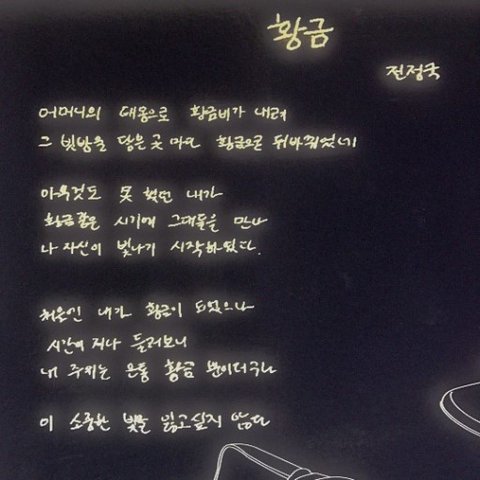 황금
전정국
어머니의 태몽으로 황금비가 내려
그 빗방울 닿은 곳 마다 황금으로 뒤바뀌었네
아무것도 못 했던 내가
황금 같은 시기에 그대들을 만나
나 자신이 빛나기 시작하였다.
처음엔 내가 황금이 되었으나
시간이 지나 둘러보니
내 주위는 온통 황금 뿐이더구나
이 소중한 빛을 잃고싶지 않다